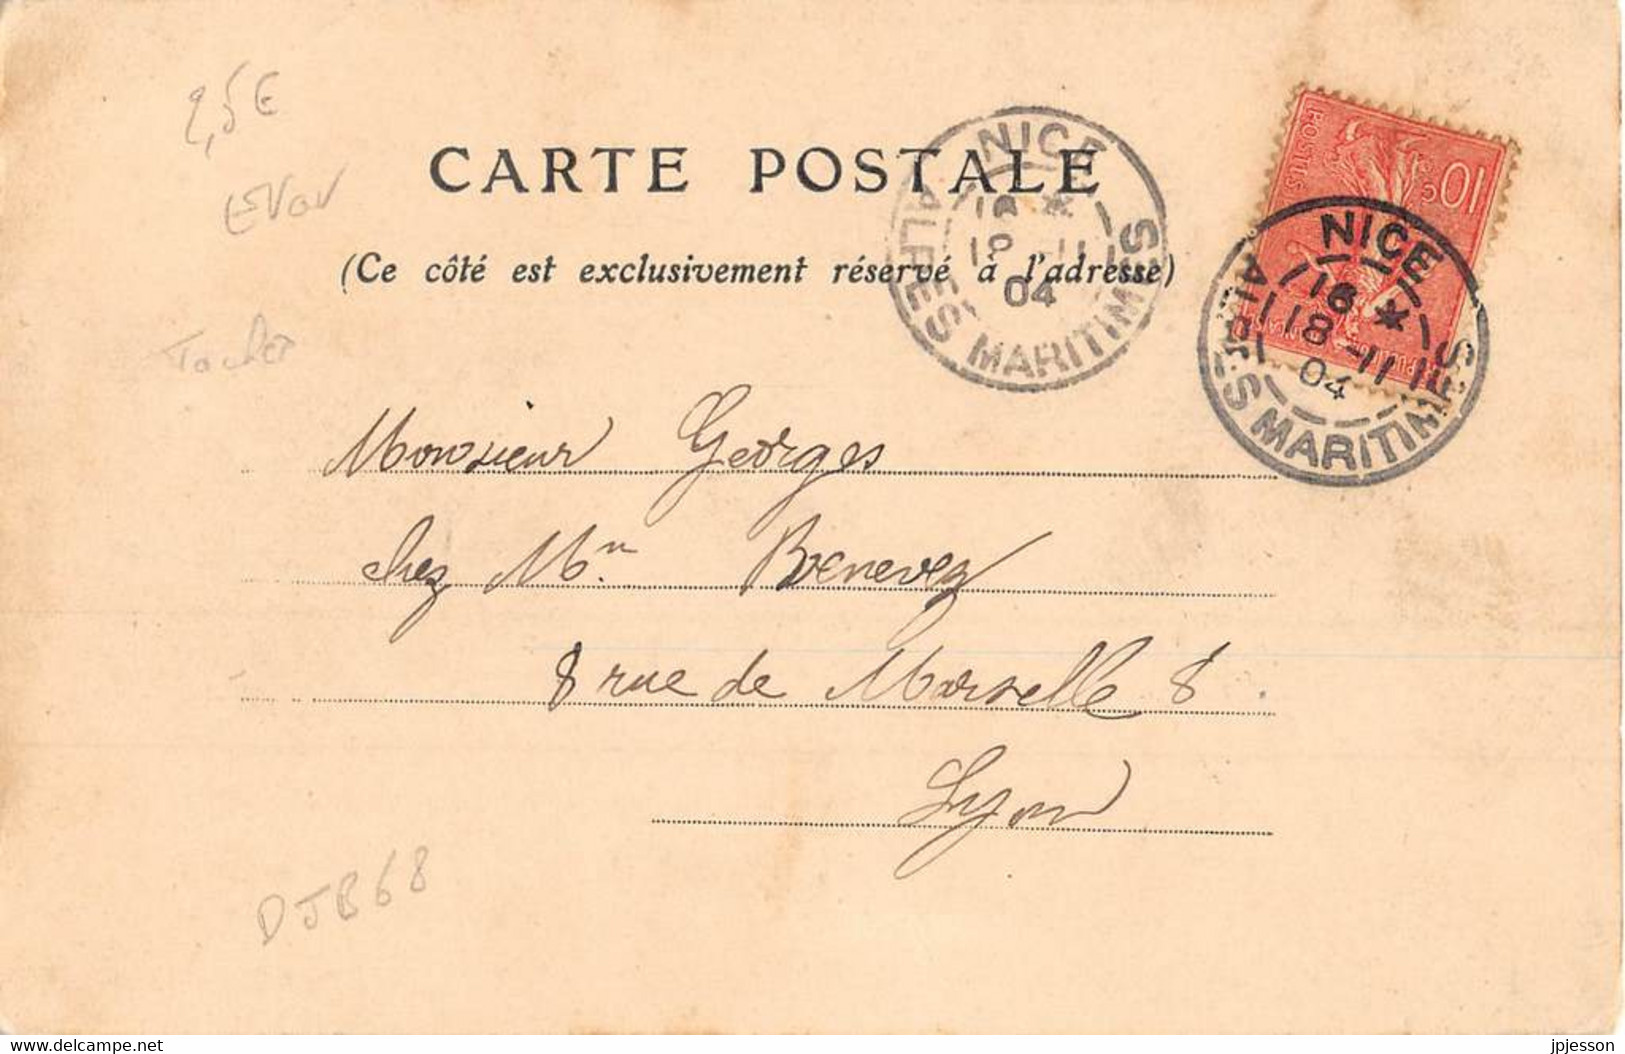 2,5€
CARTE POSTALE
(Ce côté est exclusivement réservé à l'adresse)
NICE
18 -11
04
ALPES MARITIMES
10c
POSTES
NICE
16 *
18 -11
04
ALPES MARITIMES
Monsieur Georges
chez Mr Benevez
8 rue de Marseille 8.
Lyon
DJB68
Delcampe.net
jpjesson